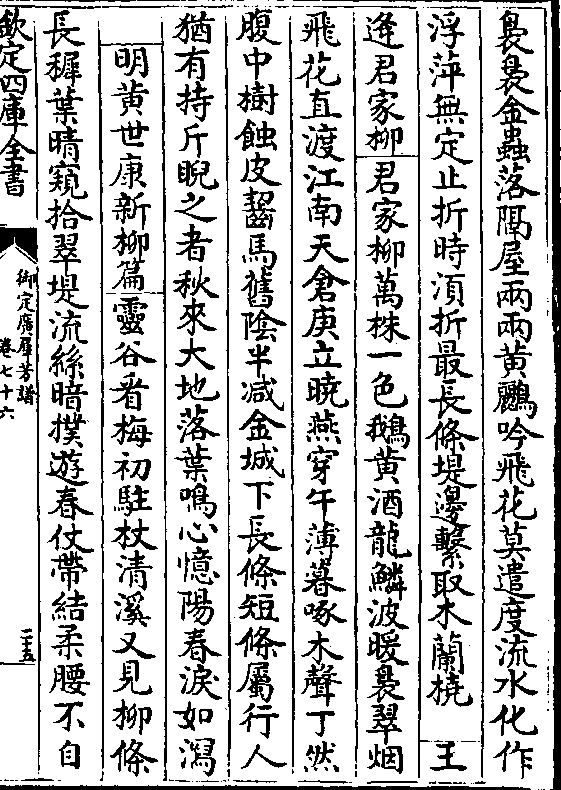 裊裊金蟲落隔屋兩兩黃鸝吟飛花莫遣度流水化作
浮萍無定止折時須折最長條堤邊繫取木蘭橈　王
逢君家柳　君家柳萬株一色鵝黃酒龍鱗波暖裊翠烟
飛花直渡江南天倉庚立曉燕穿午薄暮啄木聲丁然
腹中樹蝕皮齧馬舊陰半減金城下長條短條屬行人
猶有持斤睨之者秋來大地落葉鳴心憶陽春淚如瀉
明黃世康新柳篇　靈谷看梅初駐杖清溪又見柳條
長穉葉晴窺拾翠堤流絲暗撲遊春仗帶結柔腰不自
欽定四庫全書
御定廣羣芳譜
卷七十六
二十五